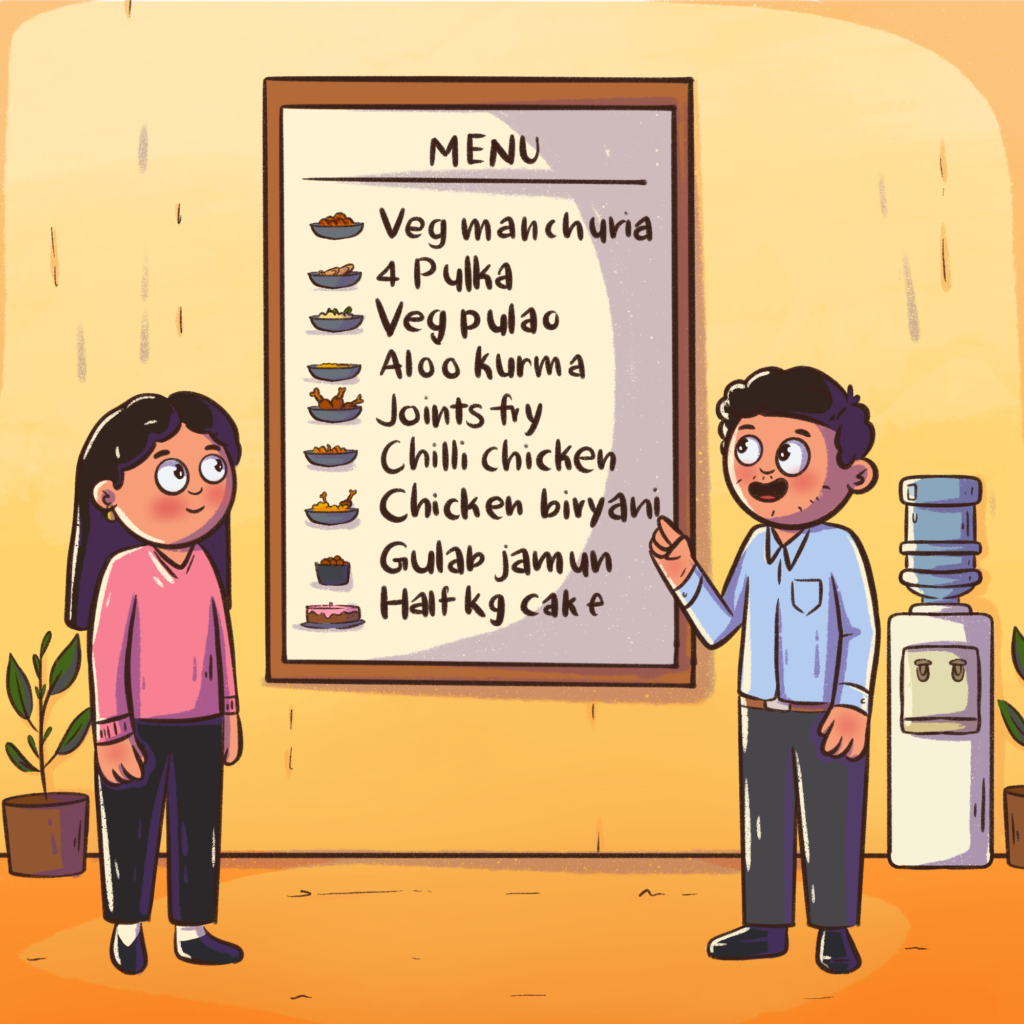 MENU
Veg manchuria
4 Pulka
Veg pulao
Aloo kurma
Joints fry
Chilli chicken
Chicken biryani
Gulab jamun
Half kg cake